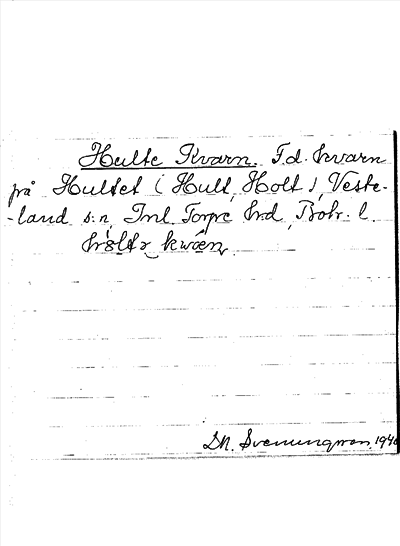 Hulte Kvarn. F.d. kvarn
på Hultet (Hult, Holt), Väste-
-land s:n, Inl. Torpe hrd, Bohr. l.
kwæn
Svenungsson, 1940